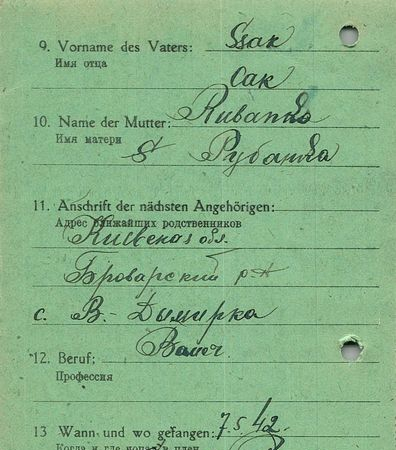 9. Vorname des Vaters: Ssak
Имя отца
Сак
10. Name der Mutter: Rubanka
Имя матери
Рубанка
11. Anschrift der nächsten Angehörigen:
Адрес ближайших родственников
Киевская обл.
Броварский р-н
с. В.-Дымирка
12. Beruf:
Профессия
13 Wann und wo gefangen: 7.5.42.
Когда и где попал в плен